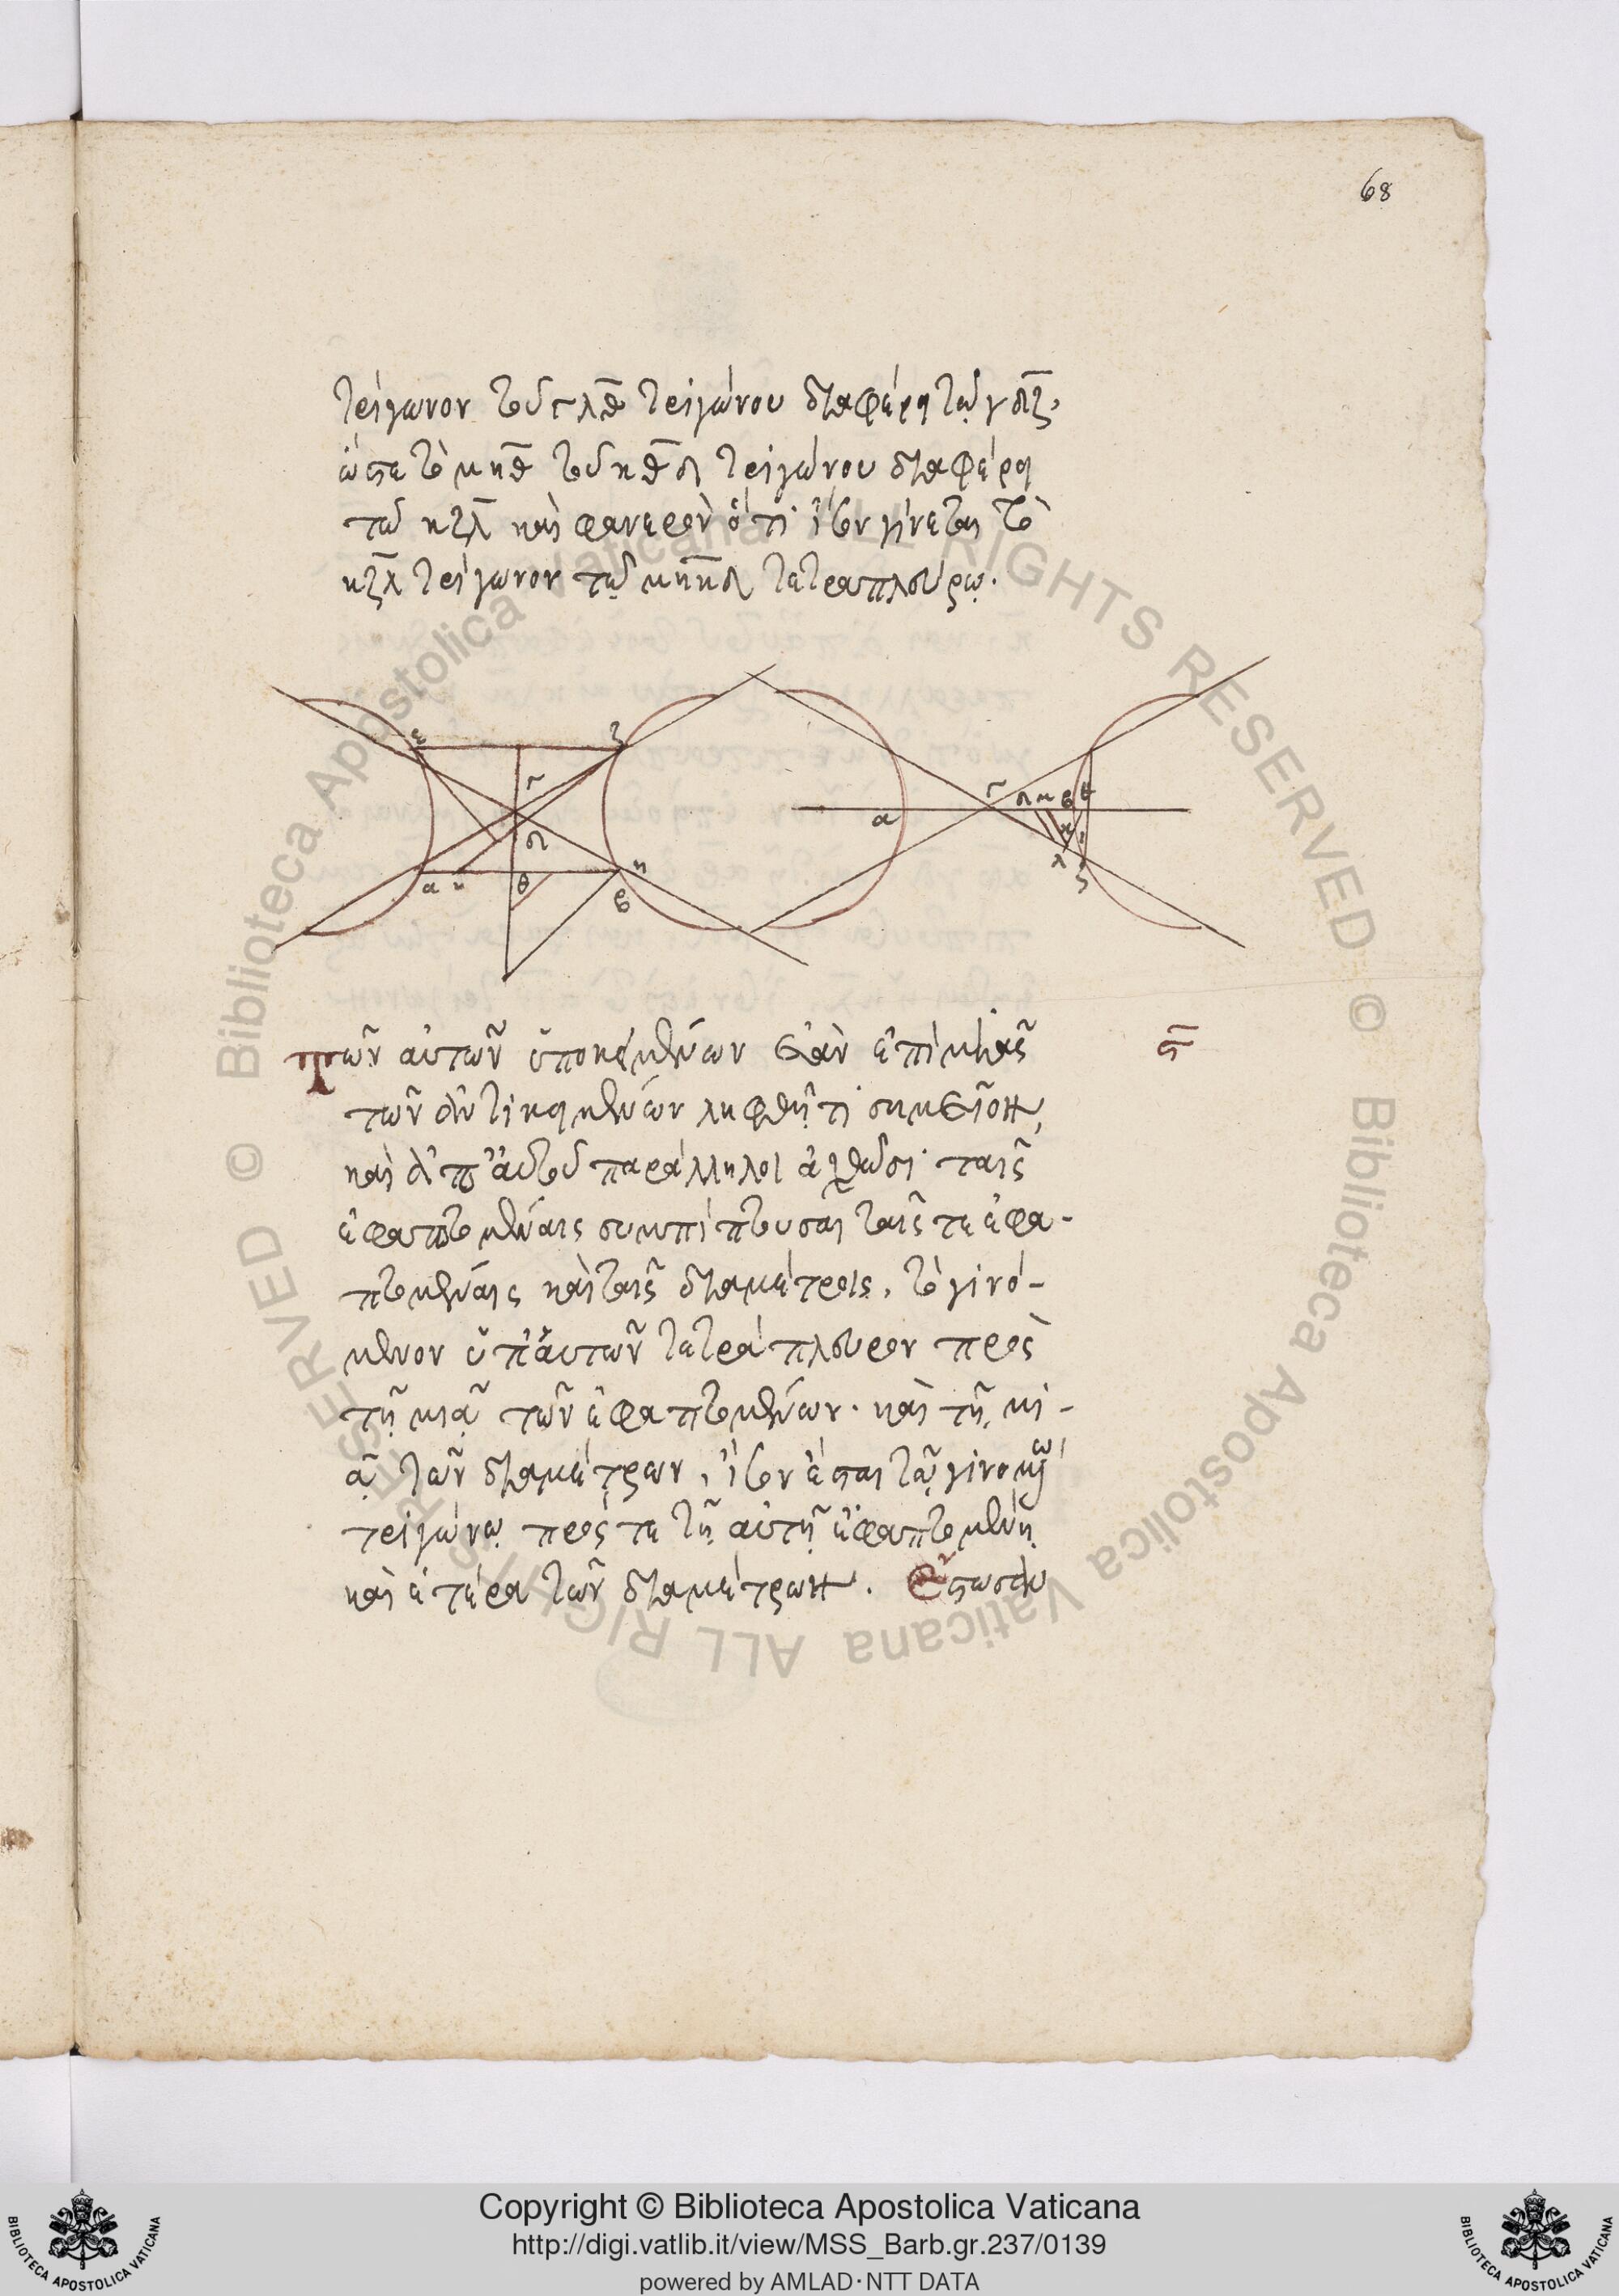 68
τρίγωνον τοῦ γλθ τριγώνου διαφέρει τῷ γδζ.
ὥστε τὸ κηθ τοῦ μθδ τριγώνου διαφέρει
τῷ κζλ καὶ φανερὸν ὅτι ἴσον γίνεται τὸ
κζλ τρίγωνον τῷ μηκδ τετραπλεύρῳ.
ε ζ
γ
δ
α κ θ η
β
α γ δ μ β θ
κ
λ ζ
Τῶν αὐτῶν ὑποκειμένων ἐὰν ἐπὶ μιᾶς
ϛ
τῶν ἀντικειμένων ληφθῇ τι σημεῖον,
καὶ ἀπ' αὐτοῦ παράλληλοι ἀχθῶσι ταῖς
ἐφαπτομέναις συμπίπτουσαι ταῖς τε ἐφα-
πτομέναις καὶ ταῖς διαμέτροις, τὸ γινό-
μενον ὑπ' αὐτῶν τετράπλευρον πρὸς
τῇ μιᾷ τῶν ἐφαπτομένων. καὶ τῇ μι-
ᾷ τῶν διαμέτρων, ἴσον ἔσται τῷ γινομένῳ
τριγώνῳ πρός τε τῇ αὐτῇ ἐφαπτομένῃ
καὶ ἑτέρα τῶν διαμέτρων. Ἔστωσαν
© Biblioteca Apostolica Vaticana ALL RIGHTS RESERVED © Biblioteca Apostolica Vaticana ALL RIGHTS RESERVED
Copyright © Biblioteca Apostolica Vaticana
http://digi.vatlib.it/view/MSS_Barb.gr.237/0139
powered by AMLAD·NTT DATA
BIBLIOTECA APOSTOLICA VATICANA
BIBLIOTECA APOSTOLICA VATICANA